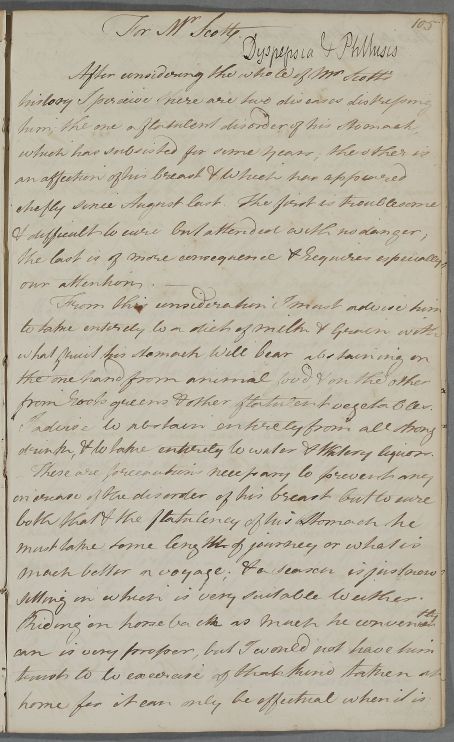 105
For Mr. Scott
Dyspepsia & Phthisis
After considering the whole of Mr Scott's
history I perceive there are two diseases distressing
him, the one a flatulent disorder of his stomach,
which has subsisted for some years, the other is
an affection of his breast & which has appeared
chefly since August last. The first is troublesome
& difficult to cure but attended with no danger,
the last is of more consequence & requires especially
our attention. —
From this consideration I must advise him
to take entirely to a diet of milk & Grain with
what fruit his stomach will bear abstaining on
the one hand from animal food & on the other
from Roots greens & other flatulent vegetables.
I advise to abstain entirely from all strong
drinks & to take entirely to water & watery liquors.
These are precautions necessary to prevent any
increase of the disorder of his breast but to cure
both that & the flatulency of his stomach he
must take some length of journey or what is
much better a voyage, & a season is just now
setting in which is very suitable to either.
Riding on horse back as much he conveniently
can is very proper, but I would not have him
trust to to exercise of that kind taken at
home for it can only be effectual when it is